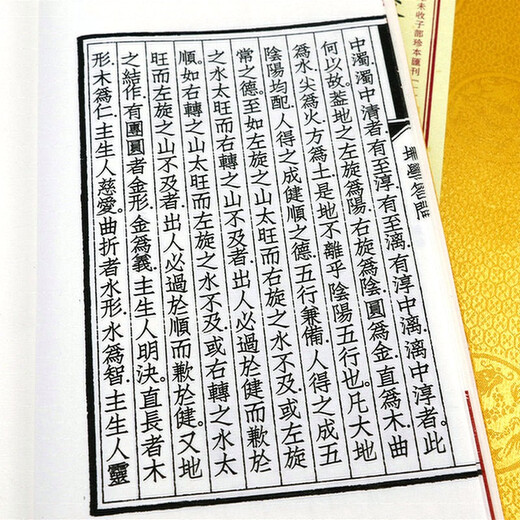 中濁濁中清者.有至淳.有至漓.有淳中漓漓中淳者。此
何以故。蓋地之左旋爲陽.右旋爲陰.圓爲金.直爲木.曲
爲水.尖爲火.方爲土.是地不離乎陰陽五行也。凡大地
陰陽均配.人得之成健順之德.五行兼備.人得之成五
常之德。至如左旋之山太旺.而右旋之水不及.或左旋
之水太旺.而右轉之山不及者.出人必過於健而歉於
順。如右轉之山太旺.而左旋之水不及.或右轉之水太
旺.而左旋之山不及者.出人必過於順而歉於健。又地
之結作.有團圓者金形.金爲義.主生人明決。直長者木
形.木爲仁.主生人慈愛。曲折者水形.水爲智.主生人靈
未收子部珍本匯刊